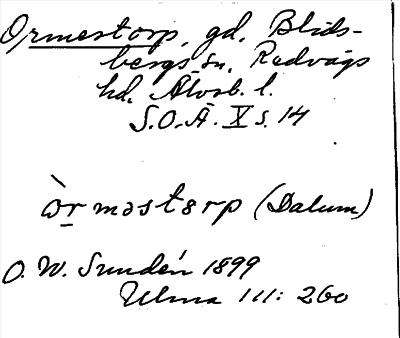 Ormestorp, gd, Blids-
bergs sn, Redvägs
hd. Älvsb. l.
S.O.Ä. X s. 14
òrməstərp (Dalum)
O. W. Sundén 1899
Ulma 111: 260